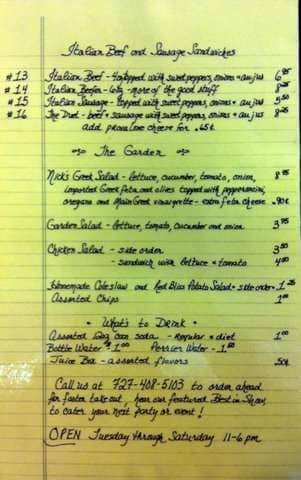 Italian Beef and Sausage Sandwiches
#13 Italian Beef - 4oz topped with sweet peppers, onions + au jus 6.95
#14 Italian Beefier - 6oz - more of the good stuff 8.25
#15 Italian Sausage - topped with sweet peppers, onions + au jus 5.50
#16 The Duet - beef + sausage with sweet peppers, onions + au jus 8.25
add provolone cheese for .65¢
The Garden
Nick's Greek Salad - lettuce, cucumber, tomato, onion, 8.95
imported Greek feta and olives topped with pepperoncini,
oregano and Main Greek vinaigrette - extra feta cheese .90¢
Garden Salad - lettuce, tomato, cucumber and onion 3.95
Chicken Salad - side order 3.50
- sandwich with lettuce + tomato 4.00
Homemade Coleslaw and Red Bliss Potato Salad + side order 1.25
Assorted Chips 1.00
• What's to Drink •
Assorted 12oz can soda - regular + diet 1.00
Bottle Water $1.00 Perrier Water - 1.50
Juice Box - assorted flavors 50¢
Call us at 727-408-5103 to order ahead
for faster take out, hear our featured Best in Show,
to cater your next party or event!
OPEN Tuesday through Saturday 11-6 pm